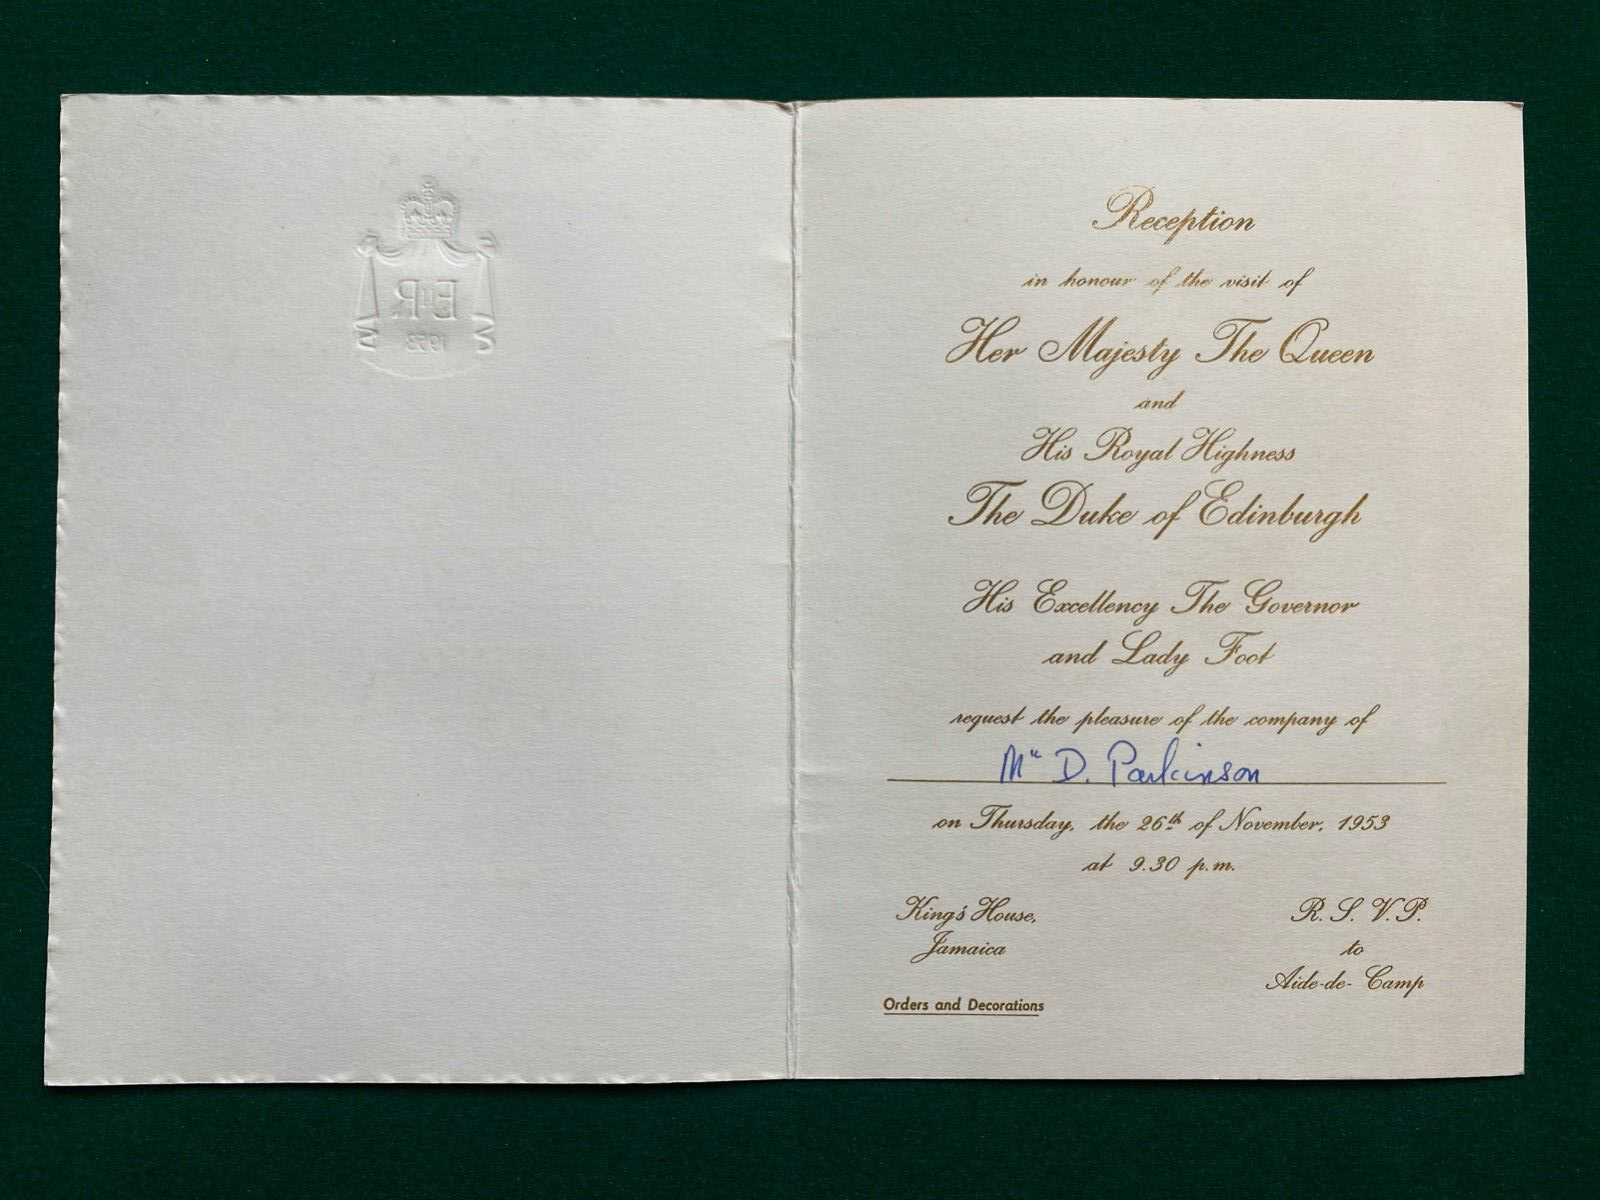 EIIR
1953
Reception
in honour of the visit of
Her Majesty The Queen
and
His Royal Highness
The Duke of Edinburgh
His Excellency The Governor
and Lady Foot
request the pleasure of the company of
Mr D. Parkinson
on Thursday, the 26th of November, 1953
at 9.30 p.m.
King's House,
Jamaica
R. S. V. P.
to
Aide-de-Camp
Orders and Decorations